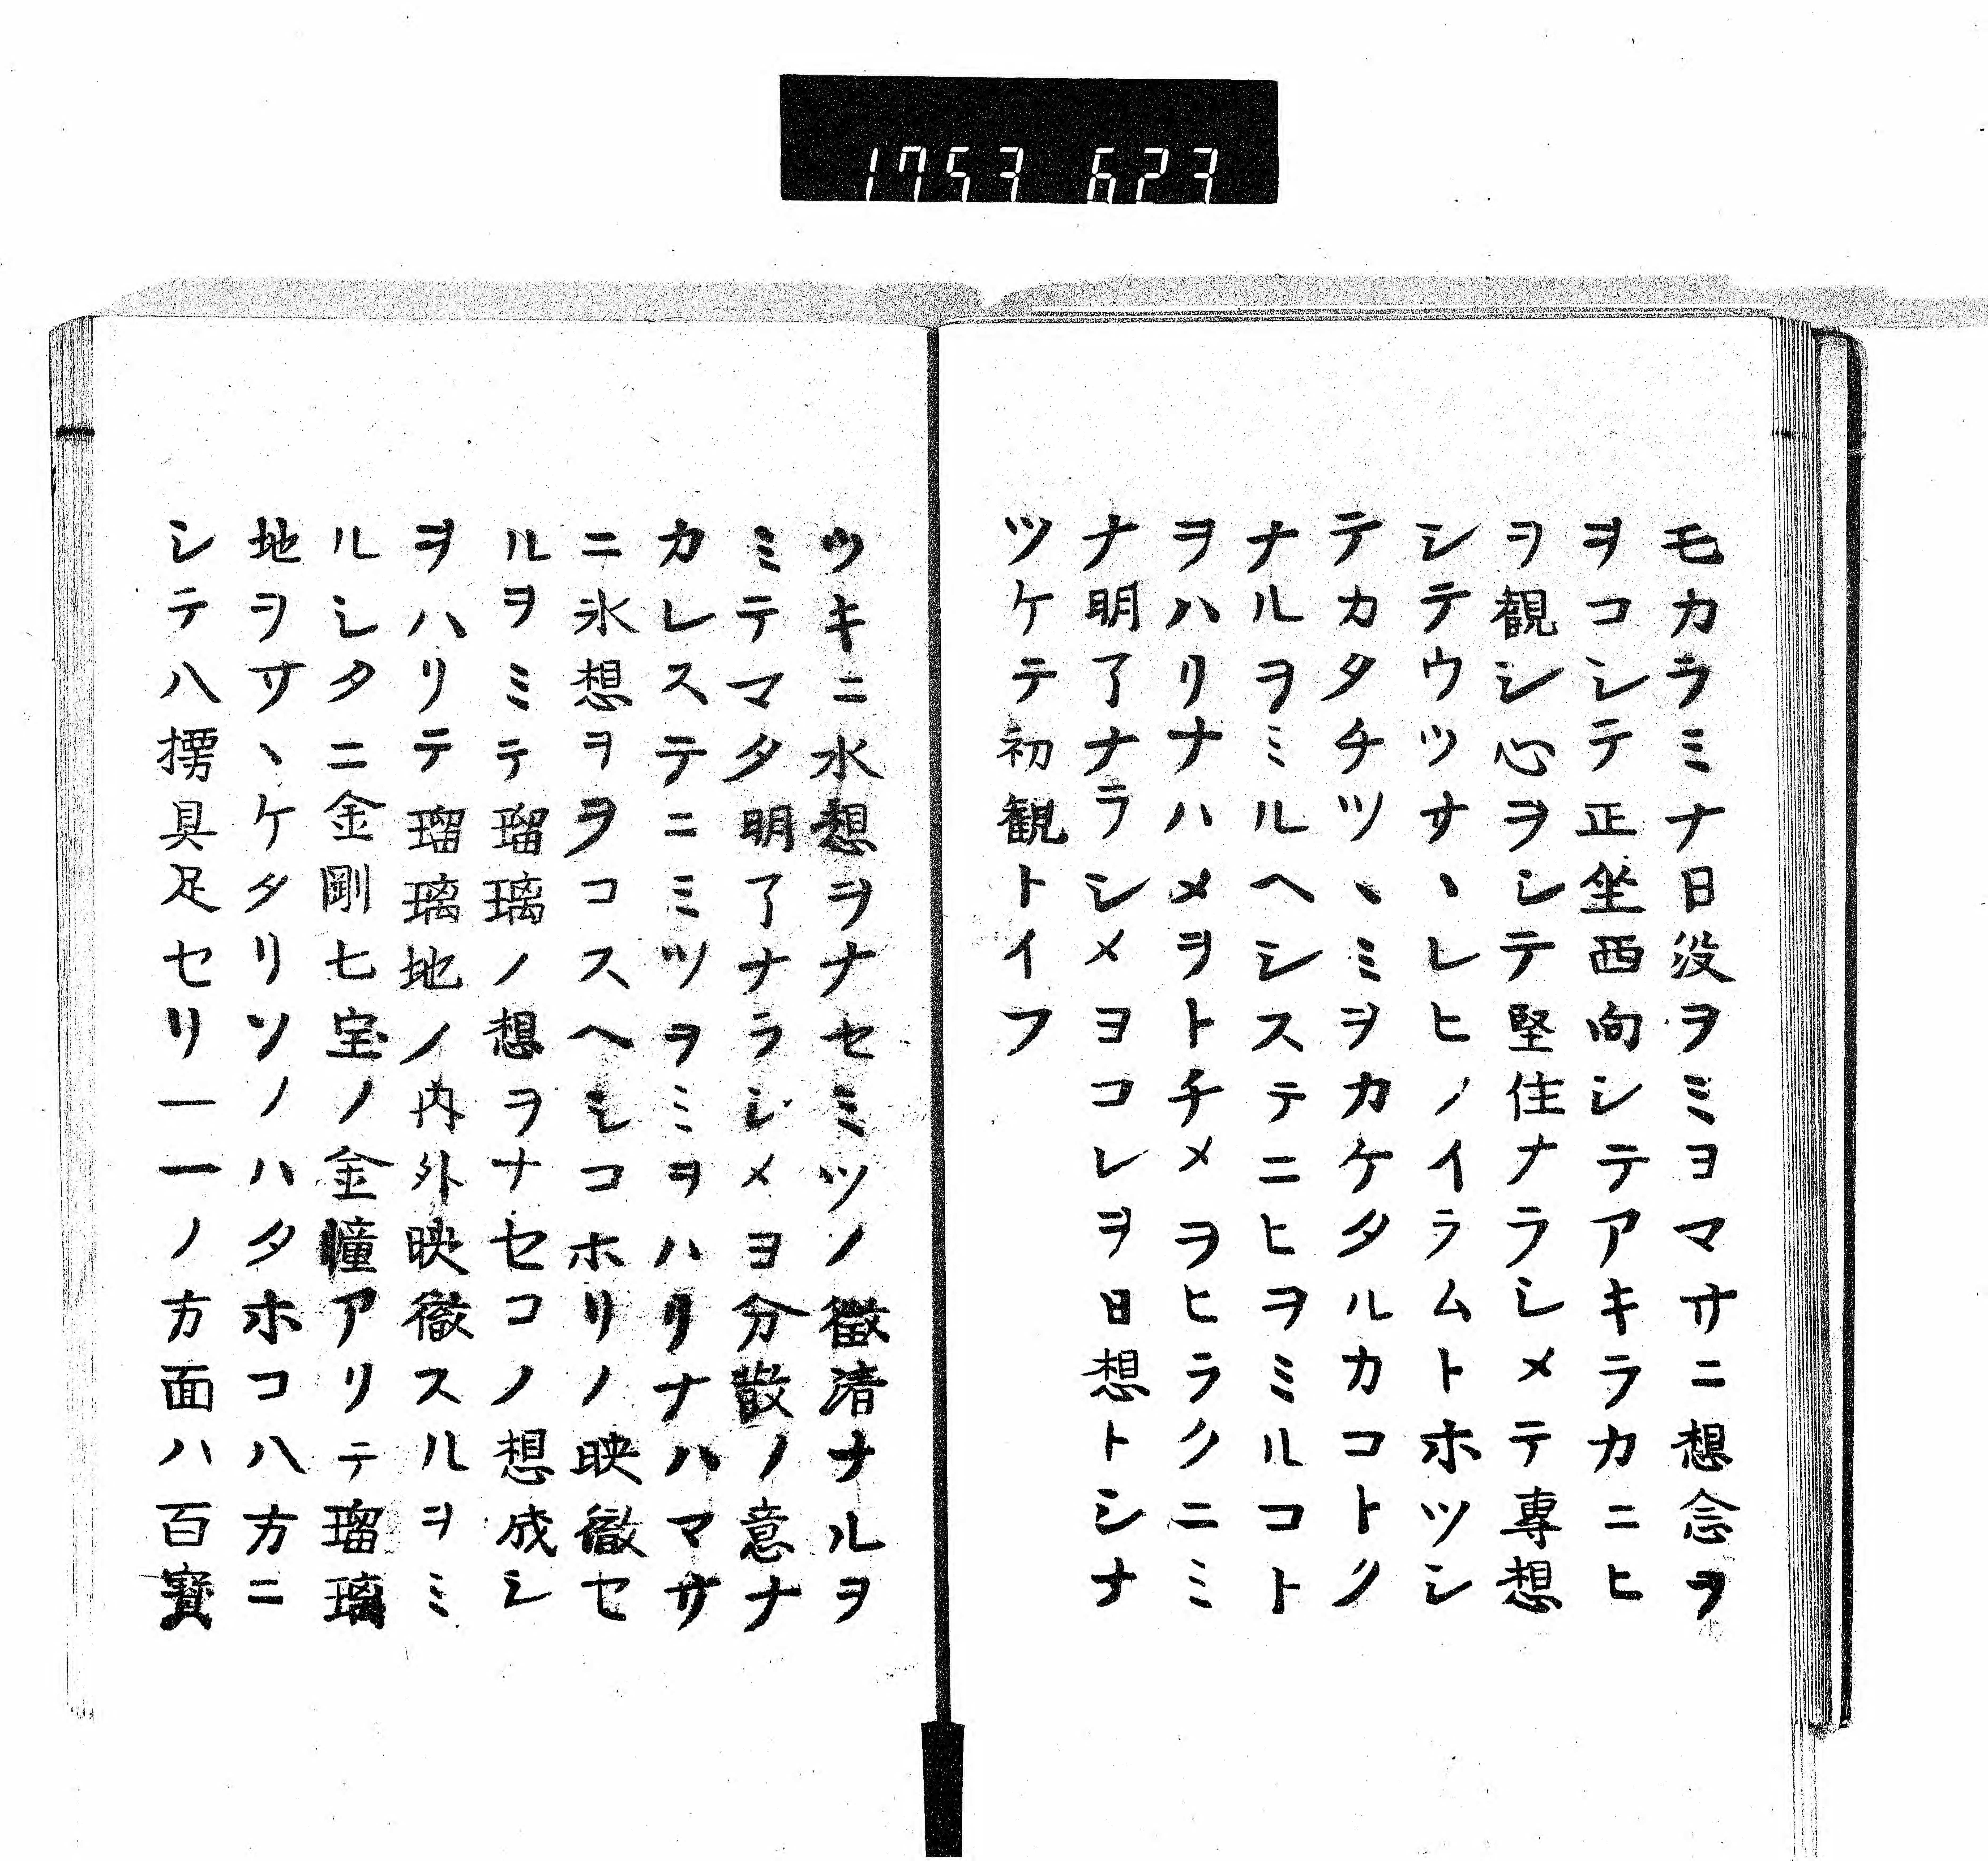 1753 623
モカラミナ日没ヲミヨマサニ想念ヲ
ヲコシテ正坐西向シテアキラカニヒ
ヲ観シ心ヲシテ堅住ナラシメテ専想
シテウツサヽレヒノイラムトホツシ
テカタチツヽミヲカケタルカコトク
ナルヲミルヘシステニヒヲミルコト
ヲハリナハメヲトチメヲヒラクニミ
ナ明了ナラシメヨコレヲ日想トシナ
ツケテ初観トイフ
ツキニ水想ヲナセミツノ徴清ナルヲ
ミテマタ明了ナラシメヨ分散ノ意ナ
カレステニミツヲミヲハリナハマサ
ニ氷想ヲヲコスヘシコホリノ映徹セ
ルヲミテ瑠璃ノ想ヲナセコノ想成シ
ヲハリテ瑠璃地ノ内外映徹スルヲミ
ルシタニ金剛七宝ノ金幢アリテ瑠璃
地ヲサヽケタリソノハタホコ八方ニ
シテ八楞具足セリ一一ノ方面ハ百寳